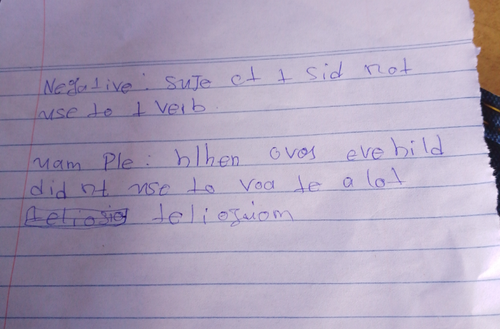 Negative: suje ct t sid not
use to t verb
uam Ple: hlhen ovos evehild
did nt use to voa te a lot
teliosiej teliosuiom